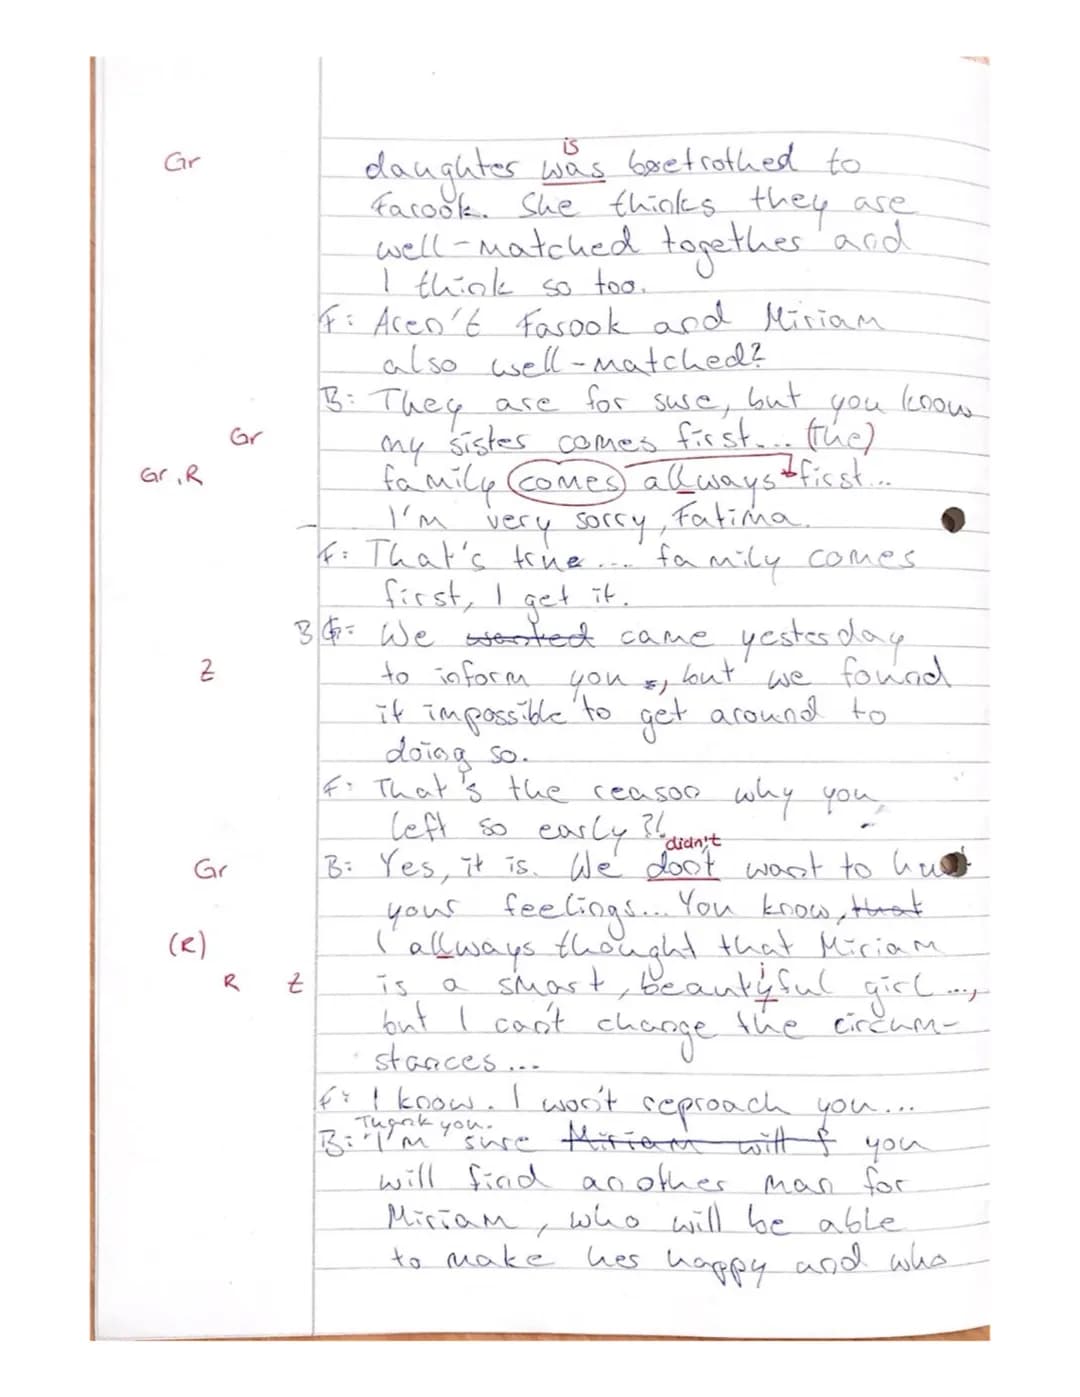 is
Gr daughter was betrothed to
Farook. She thinks they are
well-matched together and
I think so too.
F: Aren't Farook and Miriam
also well-matched?
B: They are for sure, but you know
Gr my sister comes first.... (the)
Gr, R family comes allways first...
I'm very sorry, Fatima.
F: That's true.... family comes
first, I get it.
B G: We wanted came yesterday
Z to inform you, but we found
it impossible to get around to
doing so.
F: That's the reason why you
left so early?!
didn't
Gr B: Yes, it is. We don't want to hurt
your feelings... You know, that
(R) I allways thought that Miriam
i
R Z is a smart, beautyful girl...,
but I can't change the circum-
stances...
F: I know. I won't reproach you...
Thank you.
B: I'm sure Miriam will f you
will find another man for
Miriam, who will be able
to make her happy and who